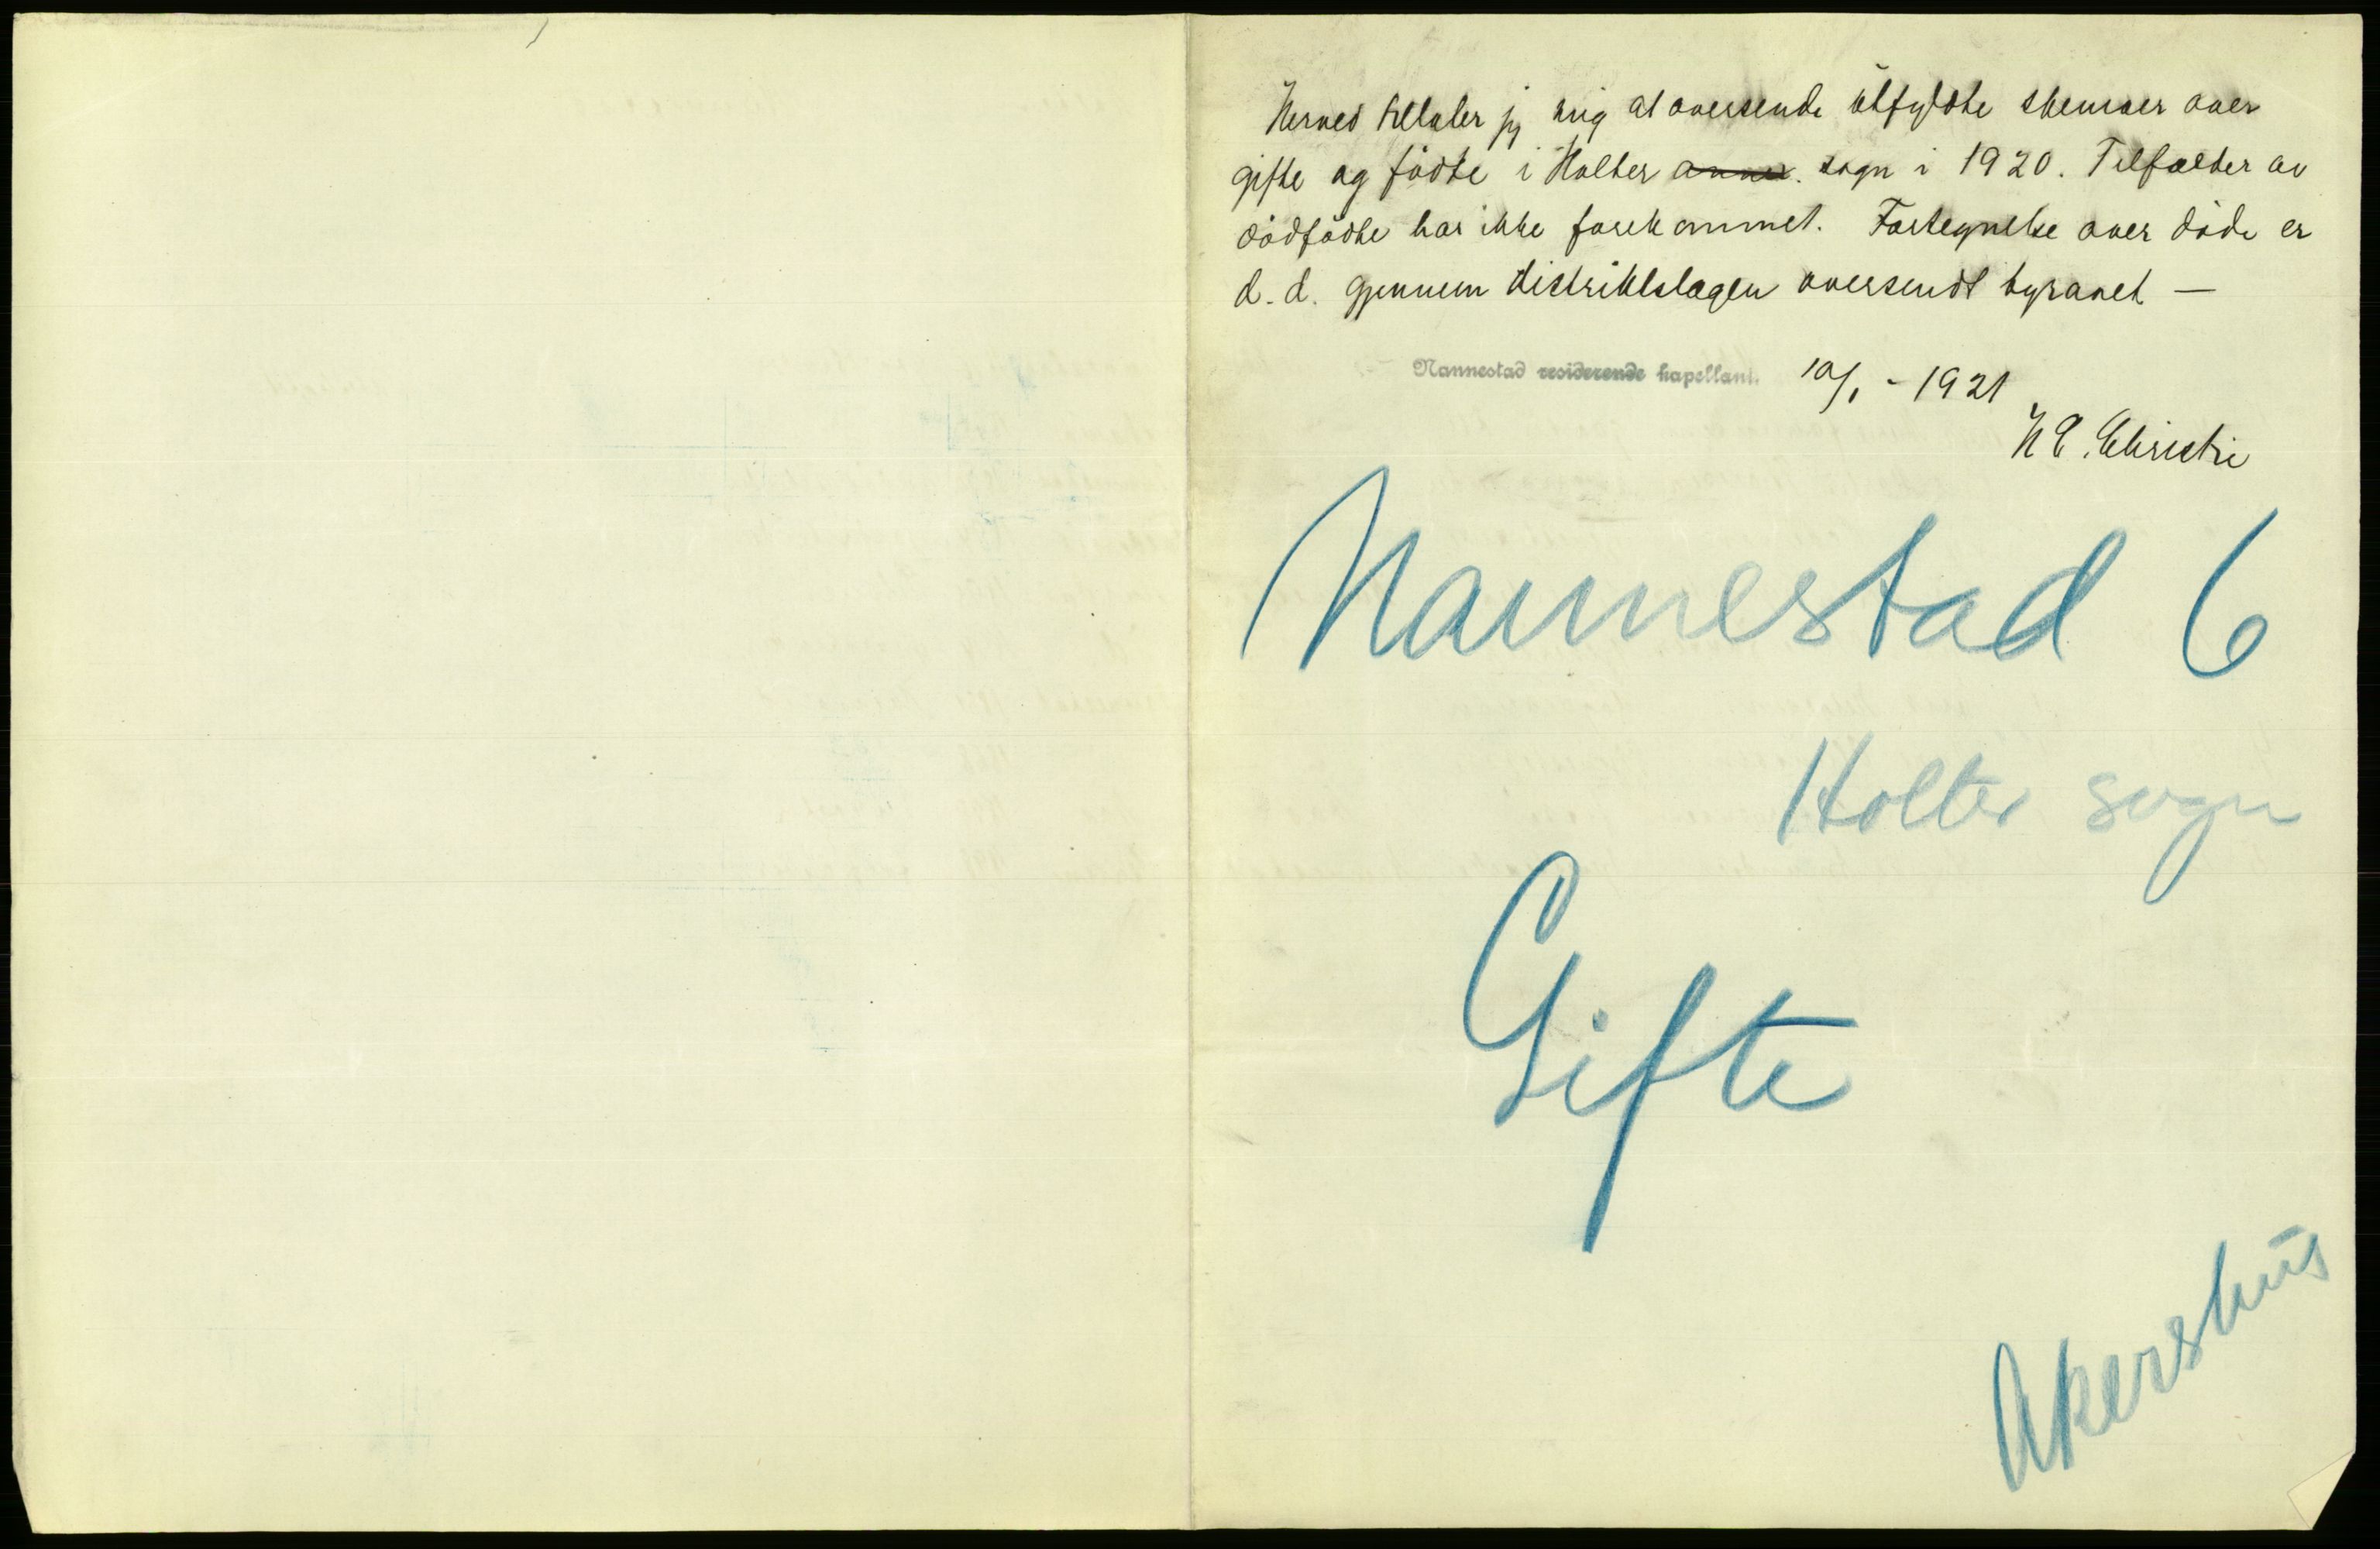 Herved tillater jeg mig at oversende utfyldte skemaer over
gifte og fødte i Holter annex. sogn i 1920. Tilfælder av
dødfødte har ikke forekommet. Fortegnelse over døde er
d.d. gjennem distriktslægen oversendt byraaet —
Nannestad residerende kapellani. 10/1 - 1921
H E. Christie
Nannestad 6
Holter sogn
Gifte
Akershus